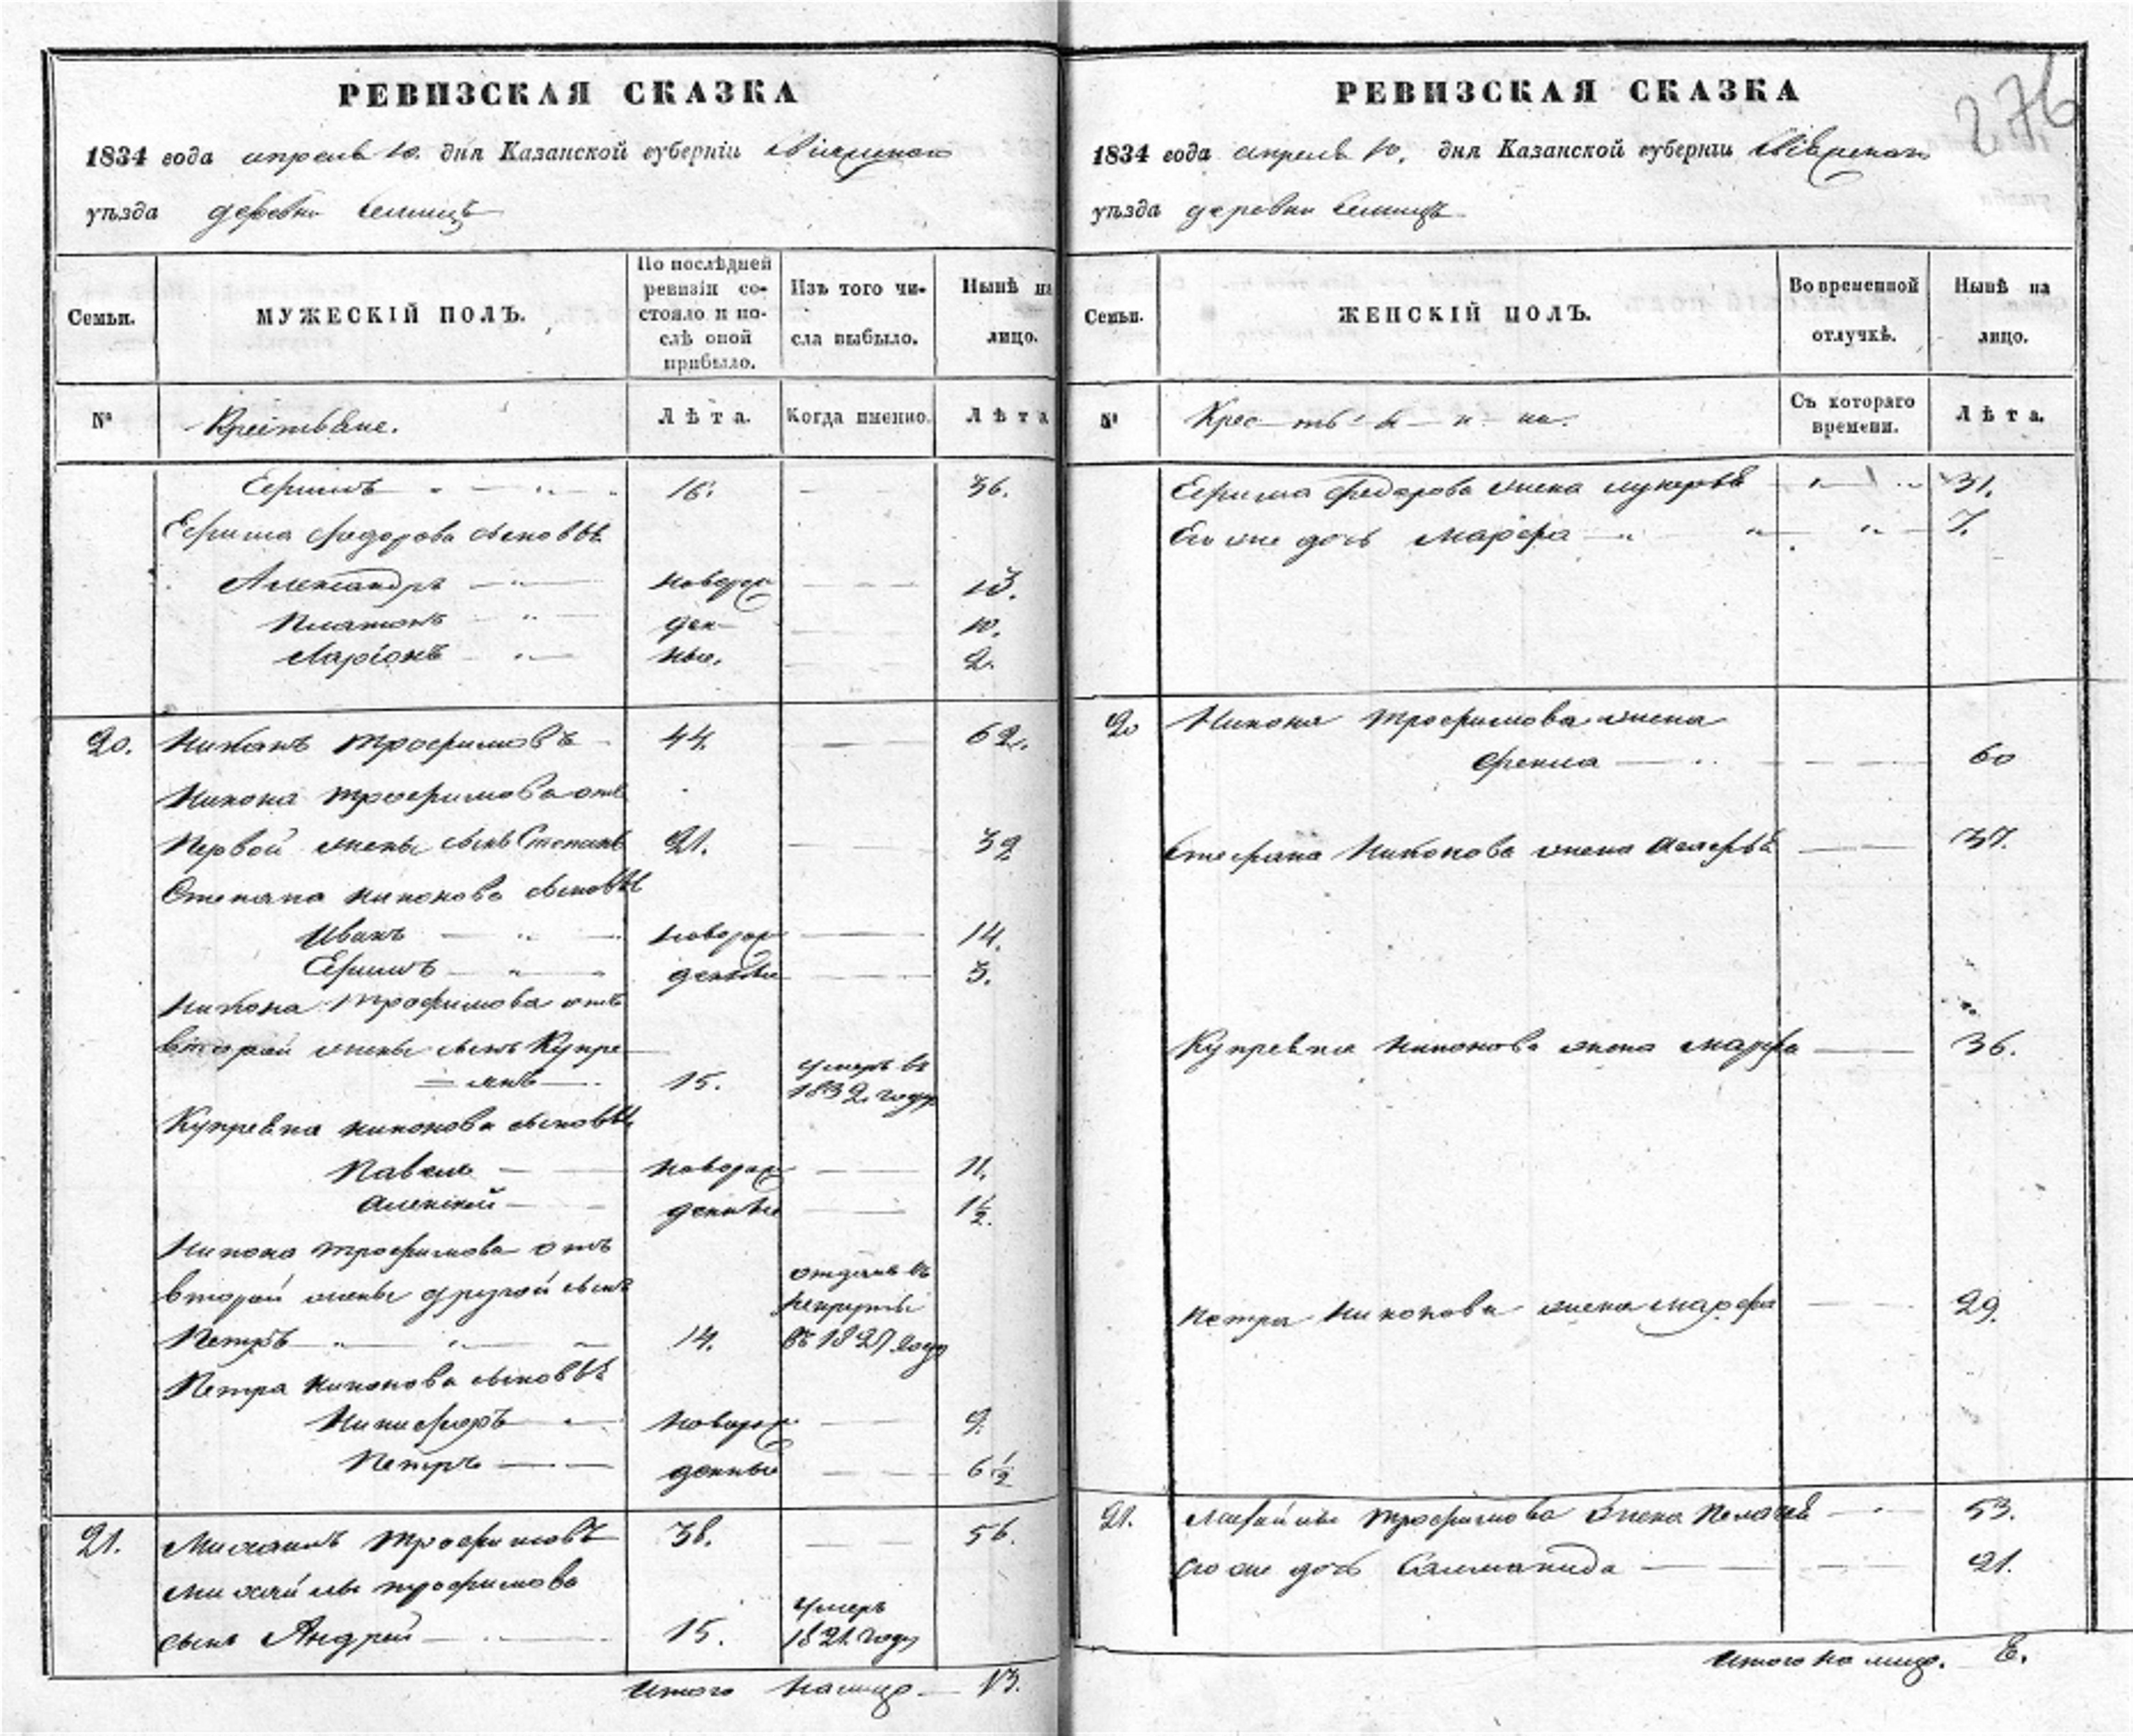 РЕВИЗСКАЯ СКАЗКА
1834 года апреля 10. дня Казанской губерніи
уѣзда деревни
Семьи.
МУЖЕСКІЙ ПОЛЪ.
По послѣдней
ревизіи со-
стояло и по-
слѣ оной
прибыло.
Изъ того чи-
сла выбыло.
Нынѣ на
лицо.
№
Крестьяне.
Лѣта.
Когда именно.
Лѣта
Ефимъ 16. 36.
Ефима Федорова сыновья
Александръ новорож 13.
Платонъ ден- 10.
Ларіонъ ные. 2.
20. Никонъ Трофимовъ 44. 62.
Никона Трофимова отъ
Первой жены сынъ Степанъ 21. 39
Степана Никонова сыновья
Иванъ новорож 14.
Ефимъ денные 3.
Никона Трофимова отъ
второй жены сынъ Купре
=янъ 15. умеръ въ 1832 году
Купреяна Никонова сыновья
Павелъ новорож 11.
Алексей денные 1½.
Никона Трофимова отъ
второй жены другой сынъ
Петръ 14. отданъ въ рекруты въ 1827 году
Петра Никонова сыновья
Никифоръ новорож 9.
Петръ денные 6½
21. Михаилъ Трофимовъ 38. 56.
Михайлы Трофимова
сынъ Андрей 15. умеръ 1821 году
Итого налицо 13.
276
РЕВИЗСКАЯ СКАЗКА
1834 года апреля 10. дня Казанской губерніи
уѣзда деревни
Семьи.
ЖЕНСКІЙ ПОЛЪ.
Во временной
отлучкѣ.
Нынѣ на
лицо.
№
Крес-ть-я-н-ка.
Съ котораго
времени.
Лѣта.
Ефима Федорова жена Лукерья 31.
Его же дочь Марфа 7.
20 Никона Трофимова жена
Фекла 60
Степана Никонова жена 37.
Купреяна Никонова жена Марфа 36.
Петра Никонова жена Марфа 29.
21. Михайлы Трофимова жена Пелагея 53.
его же дочь 21.
Итого на лицо. 8.